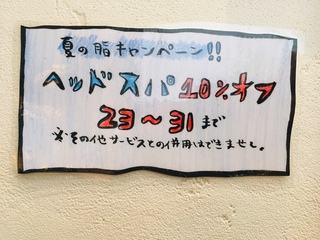 夏の脂キャンペーン!!
ヘッドスパ10%オフ
23〜31まで
※その他サービスとの併用はできませし。